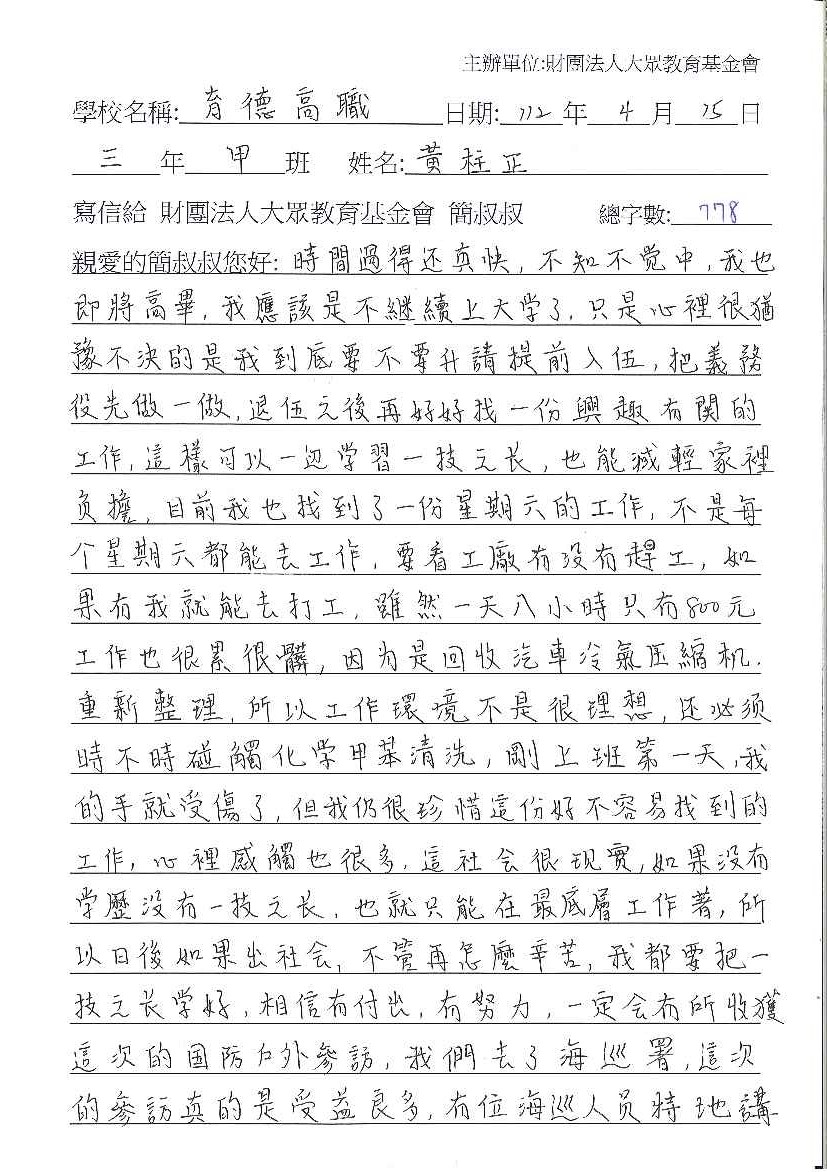 主辦單位:財團法人大眾教育基金會
學校名稱: 育德高職 日期: 112 年 4 月 15 日
三 年 甲 班 姓名: 黃柱正
寫信給 財團法人大眾教育基金會 簡叔叔 總字數: 778
親愛的簡叔叔您好: 時間過得还真快, 不知不觉中, 我也
即將高畢, 我應該是不継續上大学了, 只是心裡很猶
豫不決的是我到底要不要升請提前入伍, 把義務
役先做一做, 退伍之後再好好找一份興趣有関的
工作, 這樣可以一边学習一技之长, 也能減輕家裡
负擔, 目前我也找到了一份星期六的工作, 不是每
个星期六都能去工作, 要看工廠有沒有趕工, 如
果有我就能去打工, 雖然一天八小時只有800元
工作也很累很髒, 因为是回收汽車冷氣压縮机.
重新整理, 所以工作環境不是很理想, 还必须
時不時碰觸化学甲苯清洗, 剛上班第一天, 我
的手就受傷了, 但我仍很珍惜這份好不容易找到的
工作, 心裡感觸也很多, 這社会很现實, 如果没有
学歷没有一技之长, 也就只能在最底層工作著, 所
以日後如果出社会, 不管再怎麼辛苦, 我都要把一
技之长学好, 相信有付出, 有努力, 一定会有所收獲
這次的国防户外參訪, 我們去了海巡署, 這次
的參訪真的是受益良多, 有位海巡人员特地講